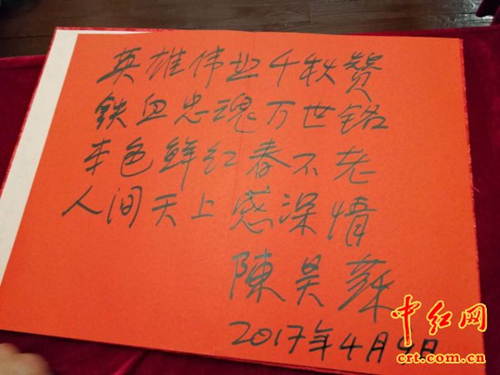 英雄伟业千秋赞
铁血忠魂万世铭
本色鲜红春不老
人间天上感深情
陳昊蘇
2017年4月日
中红网
crt.com.cn